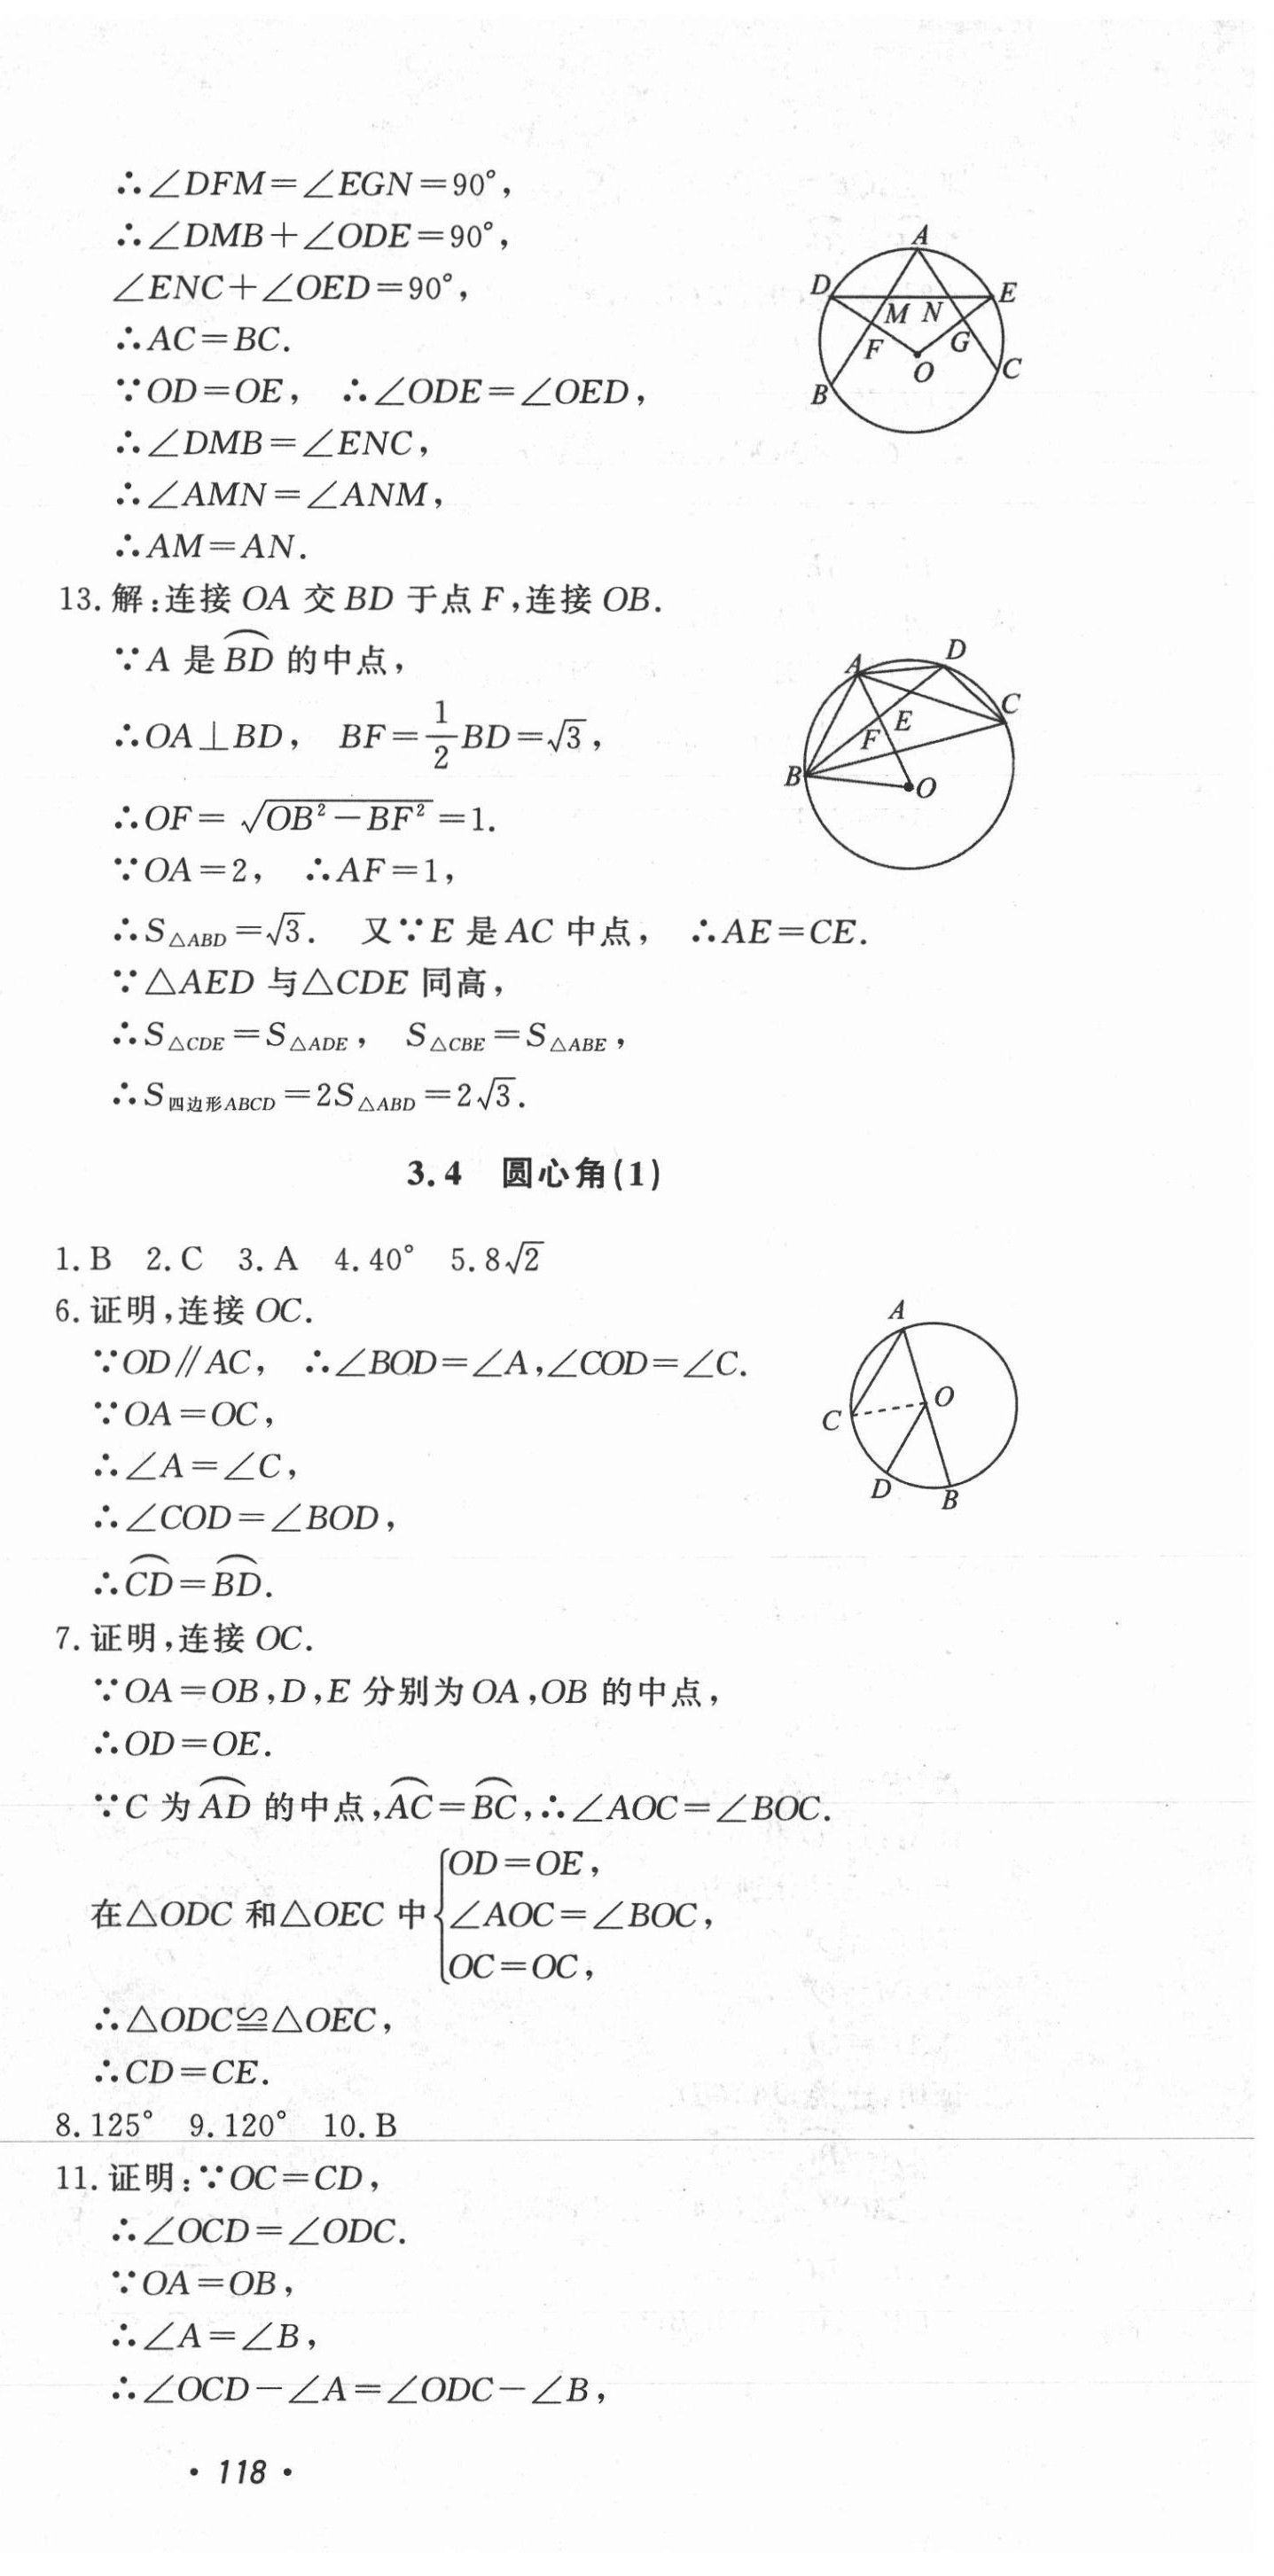 ∴∠DFM=∠EGN=90°,
∴∠DMB+∠ODE=90°,
∠ENC+∠OED=90°,
∴AC=BC.
∵OD=OE, ∴∠ODE=∠OED,
∴∠DMB=∠ENC,
∴∠AMN=∠ANM,
∴AM=AN.
A
D
E
M N
F
G
O
B
C
13. 解:连接 OA 交 BD 于点 F,连接 OB.
∵A 是 \overset{\frown}{BD} 的中点,
∴OA⊥BD, BF=\frac{1}{2}BD=√3,
∴OF=\sqrt{OB²-BF²}=1.
∵OA=2, ∴AF=1,
∴S△ABD=√3. 又∵E 是 AC 中点, ∴AE=CE.
∵△AED 与△CDE 同高,
∴S△CDE=S△ADE, S△CBE=S△ABE,
∴S四边形ABCD=2S△ABD=2√3.
A
D
C
E
F
B
O
3.4 圆心角(1)
1. B 2. C 3. A 4. 40° 5. 8√2
6. 证明,连接 OC.
∵OD∥AC, ∴∠BOD=∠A,∠COD=∠C.
∵OA=OC,
∴∠A=∠C,
∴∠COD=∠BOD,
∴\overset{\frown}{CD}=\overset{\frown}{BD}.
A
O
C
D
B
7. 证明,连接 OC.
∵OA=OB,D,E 分别为 OA,OB 的中点,
∴OD=OE.
∵C 为 \overset{\frown}{AD} 的中点,\overset{\frown}{AC}=\overset{\frown}{BC},∴∠AOC=∠BOC.
OD=OE,
在△ODC 和△OEC 中{∠AOC=∠BOC,
OC=OC,
∴△ODC≌△OEC,
∴CD=CE.
8. 125° 9. 120° 10. B
11. 证明:∵OC=CD,
∴∠OCD=∠ODC.
∵OA=OB,
∴∠A=∠B,
∴∠OCD-∠A=∠ODC-∠B,
· 118 ·